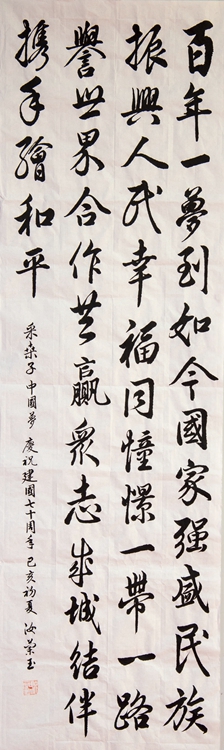 百年一夢到如今國家强盛民族
振興人民幸福同憧憬一帶一路
譽世界合作共贏眾志成城結伴
携手繪和平
采桑子 中國夢 慶祝建國七十周年 己亥初夏 汝蘭玉